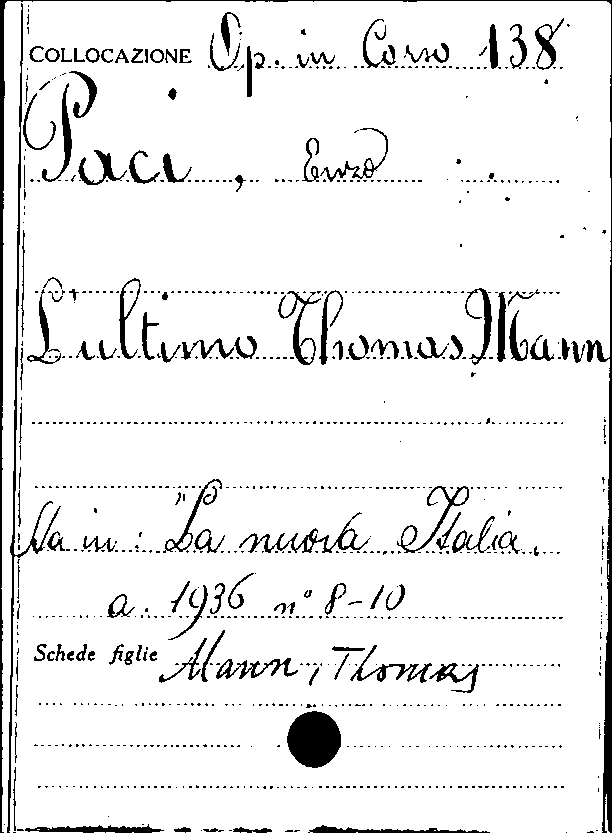 COLLOCAZIONE Op. in Corso 138
Paci, Enzo
L'ultimo Thomas Mann
Sta in: "La nuova Italia.
a. 1936 n° 8-10
Schede figlie Mann, Thomas